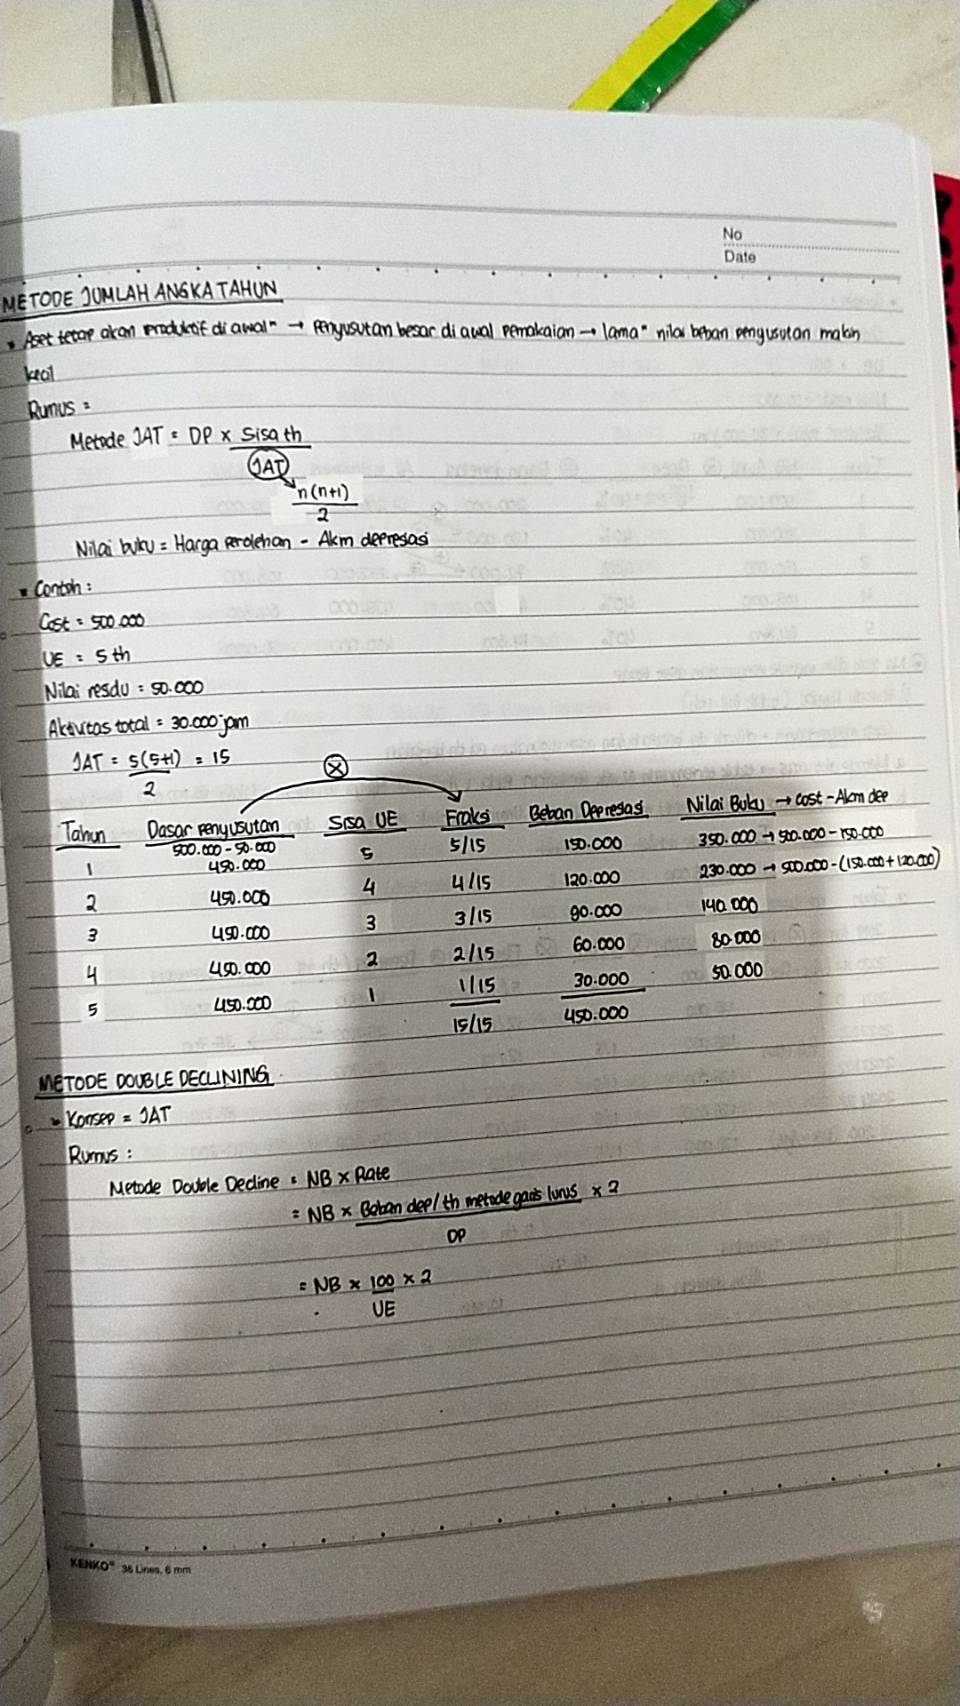 No
Date
METODE JUMLAH ANGKA TAHUN
Aset tetap akan produktif di awal" → penyusutan besar di awal pemakaian → lama" nilai beban pengusutan makin
kecil
Rumus =
Metode JAT = DP x Sisa th
JAT
n(n+1)
2
Nilai buku = Harga perolehan - Akm depresiasi
Contoh :
Cost = 500.000
UE = 5 th
Nilai resdu = 50.000
Aktivitas total = 30.000 jam
JAT = 5(5+1) = 15
2
x
Tahun Dasar penyusutan Sisa UE Fraksi Beban Depresiasi Nilai Buku → cost - Akm dep
500.000 - 50.000
1 450.000 5 5/15 150.000 350.000 → 500.000 - 150.000
2 450.000 4 4/15 120.000 230.000 → 500.000 - (150.000 + 120.000)
3 450.000 3 3/15 90.000 140.000
4 450.000 2 2/15 60.000 80.000
5 450.000 1 1/15 30.000 50.000
15/15 450.000
METODE DOUBLE DECLINING
Konsep = JAT
Rumus :
Metode Double Decline = NB x Rate
= NB x Beban dep/th metode garis lurus x 2
DP
= NB x 100 x 2
UE
KENKO® 36 Lines, 6 mm